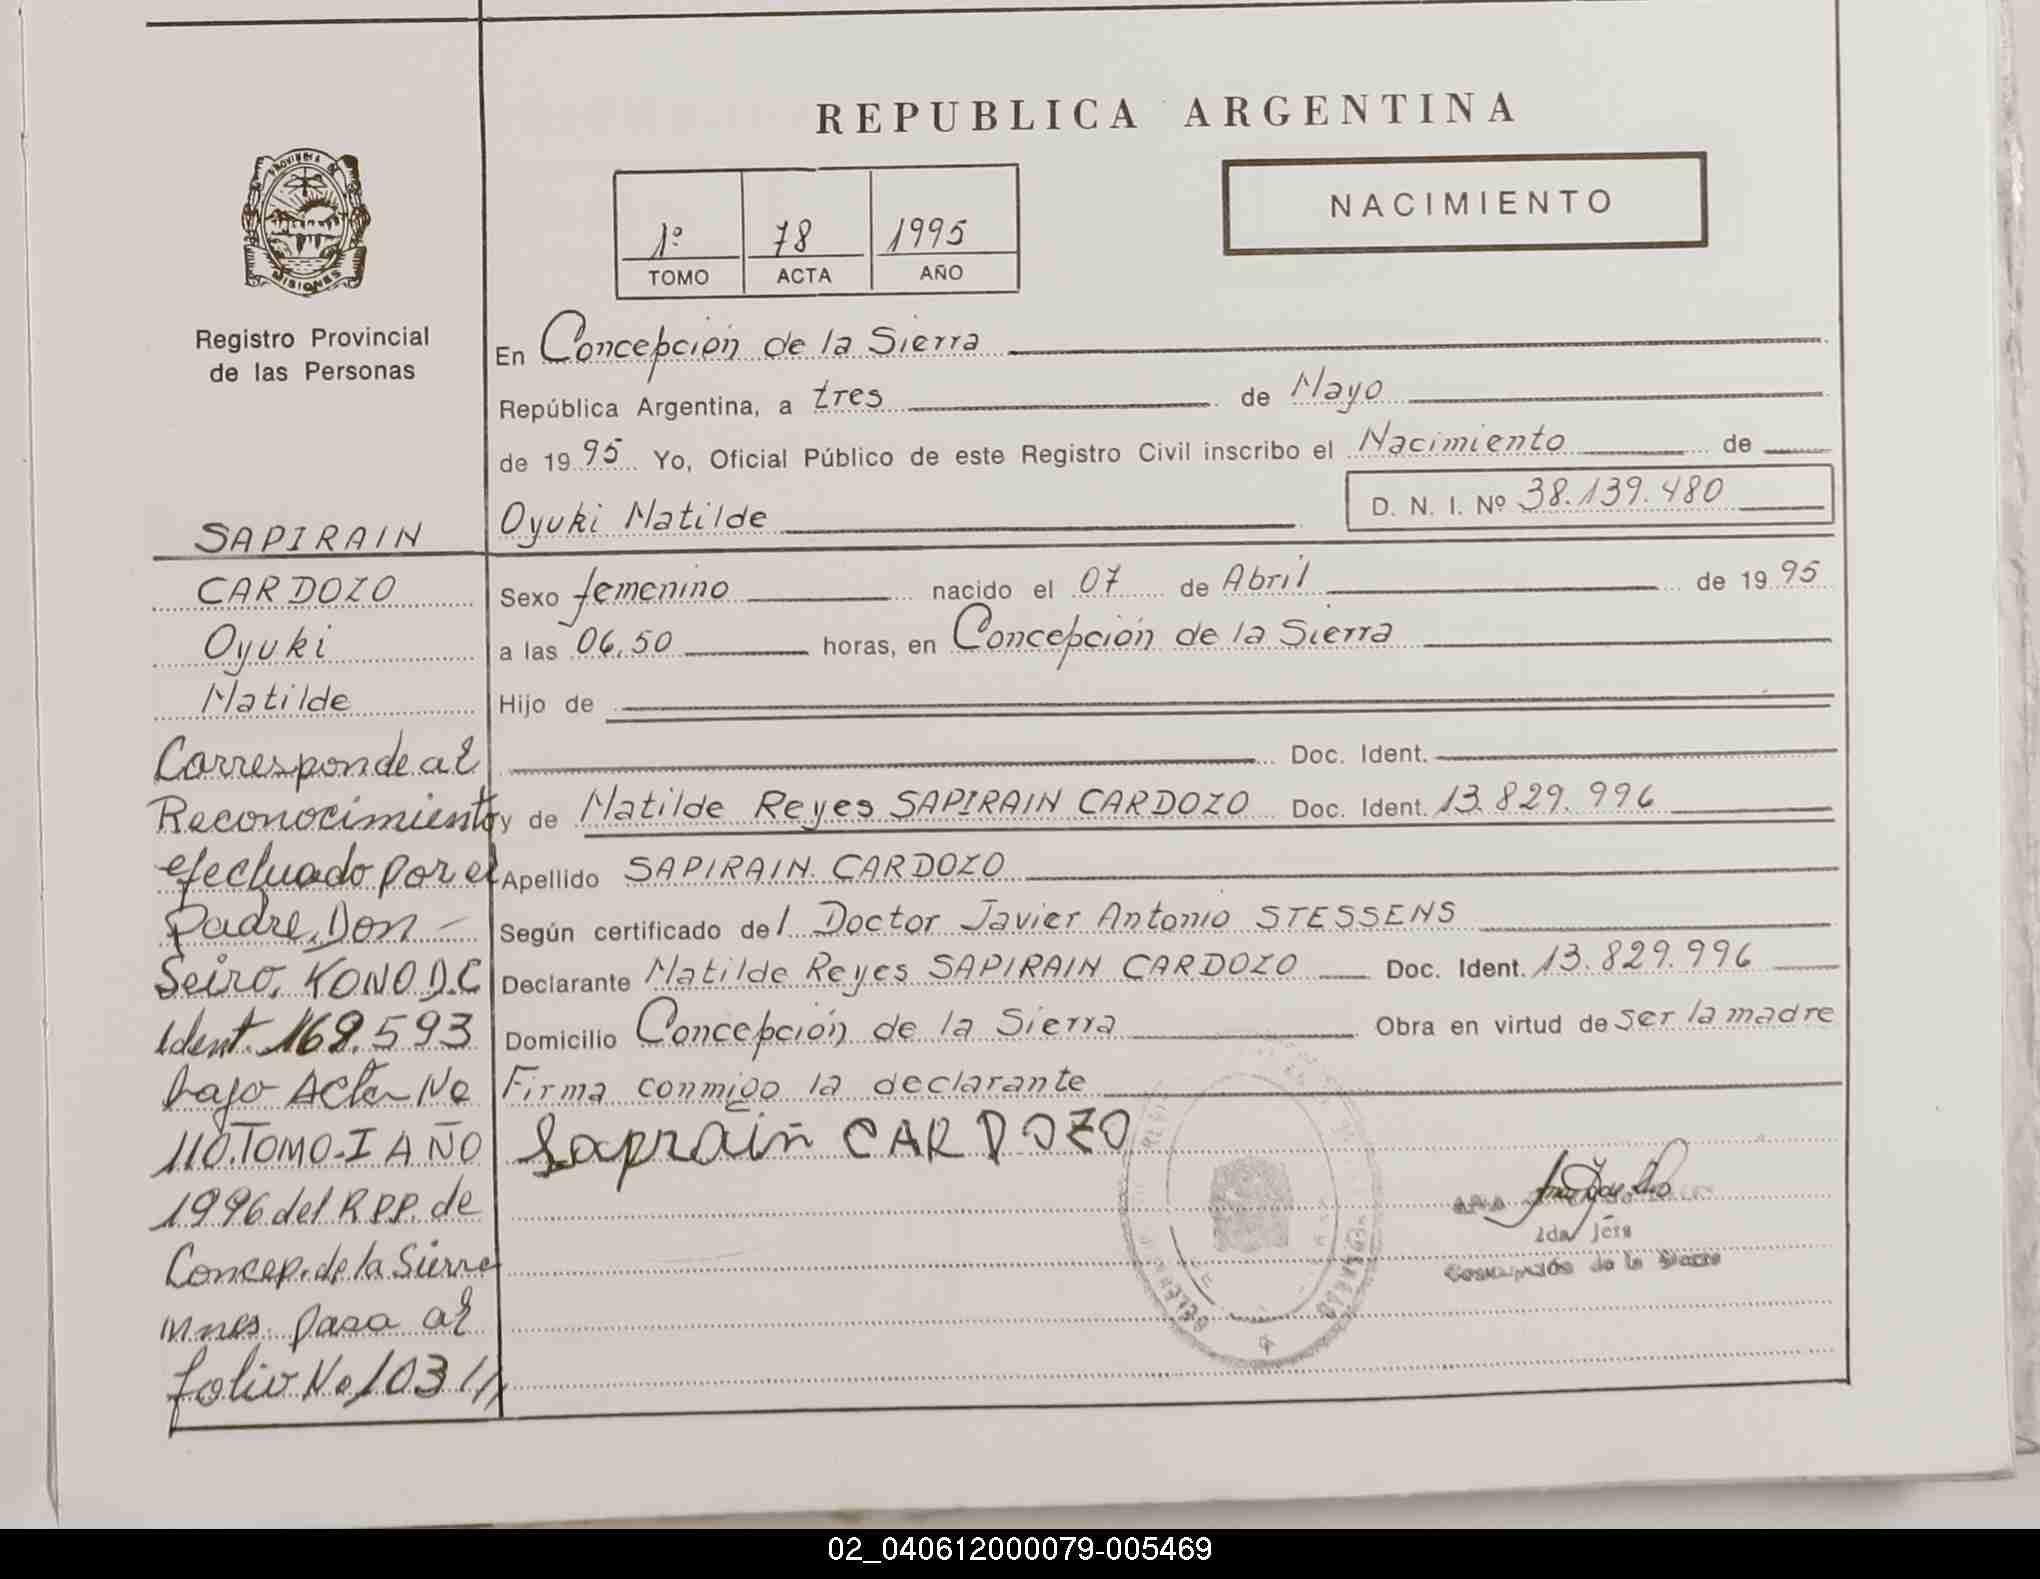 REPUBLICA ARGENTINA
PROVINCIA DE
MISIONES
Registro Provincial
de las Personas
1º 78 1995
TOMO ACTA AÑO
NACIMIENTO
En Concepción de la Sierra
República Argentina, a tres de Mayo
de 1995 Yo, Oficial Público de este Registro Civil inscribo el Nacimiento de
Oyuki Matilde D. N. I. Nº 38.139.480
Sexo femenino nacido el 07 de Abril de 1995
a las 06.50 horas, en Concepción de la Sierra
Hijo de
Doc. Ident.
y de Matilde Reyes SAPIRAIN CARDOZO Doc. Ident. 13.829.996
Apellido SAPIRAIN CARDOZO
Según certificado del Doctor Javier Antonio STESSENS
Declarante Matilde Reyes SAPIRAIN CARDOZO Doc. Ident. 13.829.996
Domicilio Concepción de la Sierra Obra en virtud de ser la madre
Firma conmigo la declarante
Sapirain CARDOZO
2da Jefe
Concepción de la Sierra
SAPIRAIN
CARDOZO
Oyuki
Matilde
Corresponde al
Reconocimiento
efectuado por el
Padre, Don
Seiro, KONO D.C
Ident. 169.593
bajo Acta Nº
110.TOMO-I AÑO
1996 del R.P.P. de
Concep. de la Sierra
Mnes. pasa al
folio Nº 103
02_040612000079-005469